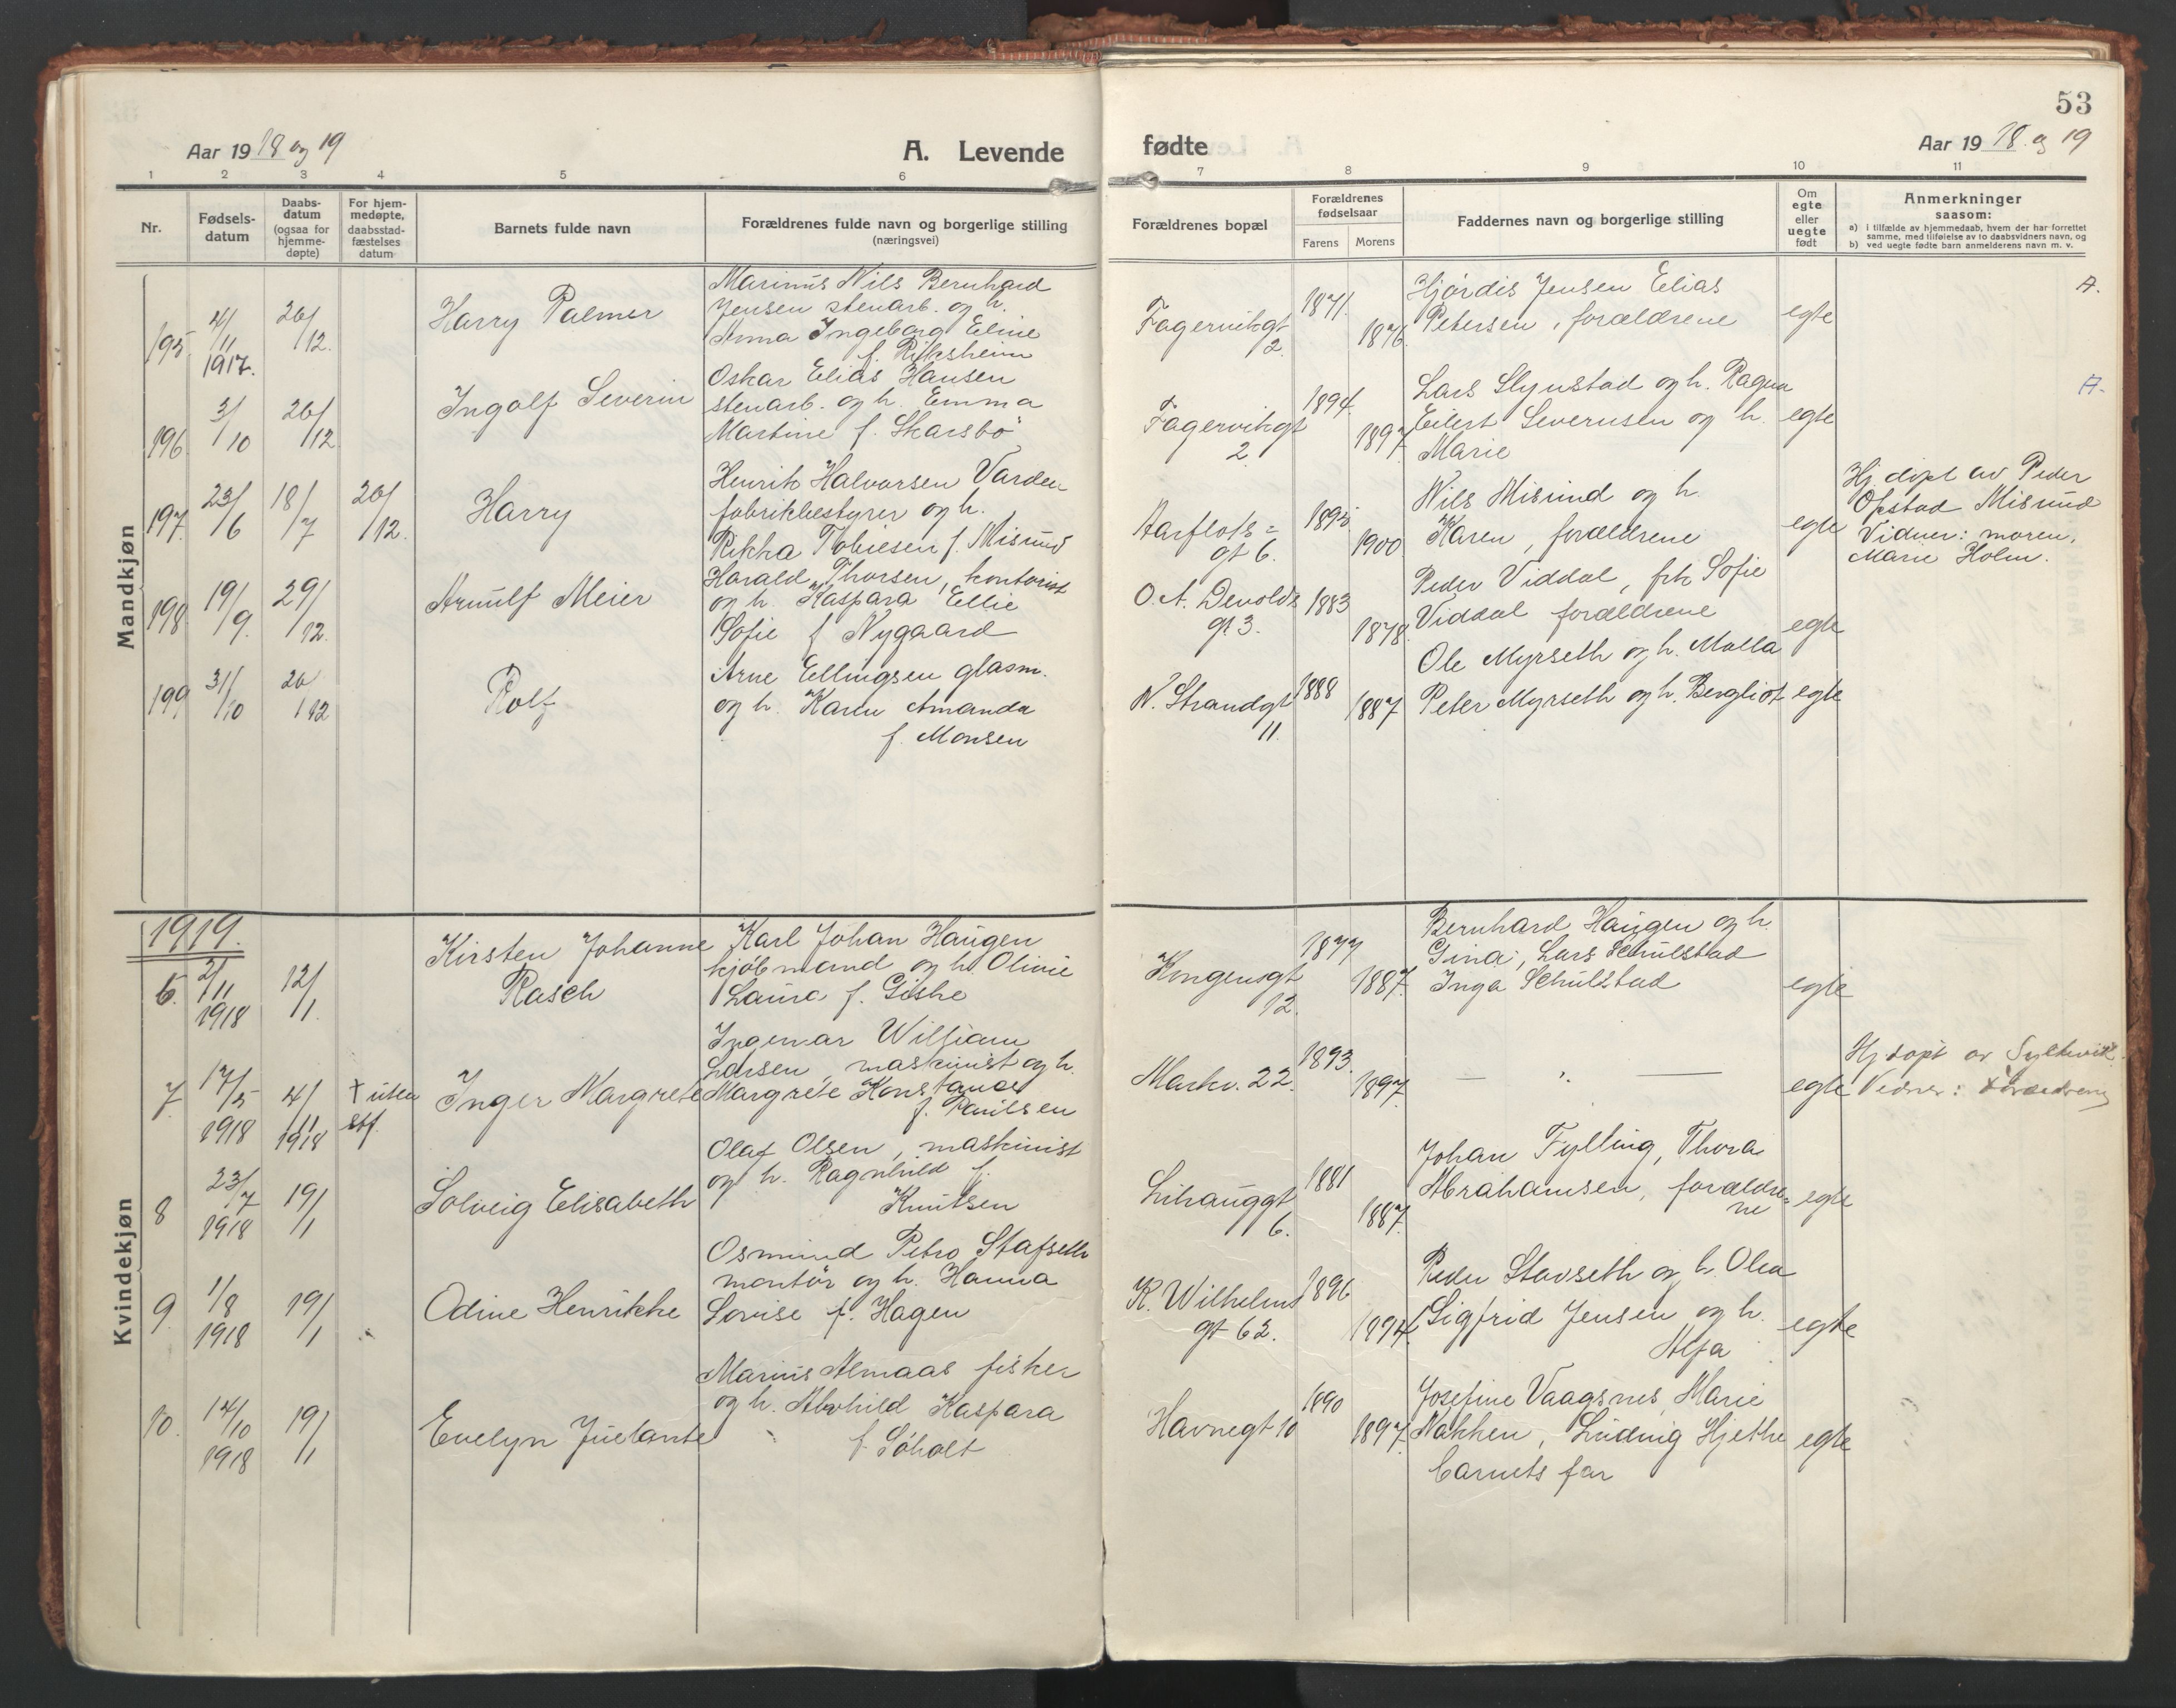 53
Aar 19 18 og 19
A. Levende fødte
Aar 19 18. og 19
1 2 3 4 5 6 7 8 9 10 11
Nr.
Fødsels-
datum
Daabs-
datum
(ogsaa for
hjemme-
døpte)
For hjem-
medøpte,
daabsstad-
fæstelses
datum
Barnets fulde navn
Forældrenes fulde navn og borgerlige stilling
(næringsvei)
Forældrenes bopæl
Forældrenes
fødselsaar
Farens Morens
Faddernes navn og borgerlige stilling
Om
egte
eller
uegte
født
Anmerkninger
saasom:
a) i tilfælde av hjemmedaab, hvem der har forrettet
samme, med tilføielse av to daabsvidners navn, og
b) ved uegte fødte barn anmelderens navn m. v.
Mandkjøn
195
4/11
1917.
26/12.
Harry Palmer
Marinus Nils Bernhard
Jensen stenarb. og h.
Anna Ingeborg Eline
f. Riksheim
Fagervikgt
2.
1871.
1876.
Hjørdis Jensen Elias
Petersen, forældrene
egte
A.
196
3/10
26/12
Ingolf Severin
Oskar Elias Hansen
stenarb. og h. Emma
Martine f. Skarsbø
Fagervikgt
2.
1894.
1897.
Lars Slynstad og h. Ragna
Eilert Severinsen og h.
Marie
egte
A.
197.
23/6
18/7
26/12.
Harry
Henrik Halvorsen Varden
fabrikbestyrer og h.
Rikka Tobiesen f. Misund
Aarflots=
gt 6.
1895
1900
Nils Misund og h.
Karen, forældrene
egte
Hj. døpt av Peder
Opstad Misund
Vidner: moren,
Marie Holm.
198
19/9.
29/12.
Arnulf Meier
Harald Thorsen, kontorist
og h. Kaspara Ellie
Sofie f Nygaard
O. A. Devolds
gt 3.
1883
1878.
Peder Viddal, frk Sofie
Viddal forældrene
egte
199
31/10
26/12
Rolf
Arne Ellingsen glasm.
og h. Karen Amanda
f. Monsen
N. Strandgt
11.
1888
1887
Ole Myrseth og h. Malla
Peter Myrseth og h. Bergliot
egte
Kvindekjøn
1919.
6.
2/11
1918
12/1.
Kirsten Johanne
Rasch
Karl Johan Haugen
kjøbmand og h. Oline
Laura f. Giske
Kongensgt
12.
1877
1887.
Bernhard Haugen og h.
Gina, Lars Schulstad
Inga Schulstad
egte
7.
17/5
1918
4/11
1918
† uten
stf.
Inger Margrete
Ingemar William
Larsen, maskinist og h.
Margrete Konstanse
f. Paulsen
Markv. 22.
1893.
1897.
— " —
egte
Hj døpt av Syltevik.
Vidner: forældrene
8
23/7
1918
19/1
Solveig Elisabeth
Olaf Olsen, maskinist
og h. Ragnhild f.
Knutsen
Lihauggt
6.
1881
1887.
Johan Fylling, Thora
Abrahamsen, forældre=
ne
egte
9.
1/8
1918
19/1
Odine Henrikke
Osmund Petro Stafseth
montør og h. Hanna
Lovise f. Hagen
K. Wilhelms
gt 62.
1896
1894.
Peder Stavseth og h. Olea
Sigfrid Jensen og h.
Alfa
egte
10.
14/10
1918
19/1
Evelyn Juelante
Marius Almaas fisker
og h. Alvhild Kaspara
f. Søholt
Havnegt 10
1890
1897.
Josefine Vaagsnes, Marie
Nakken, Ludvig Hjelhe
barnets far
egte